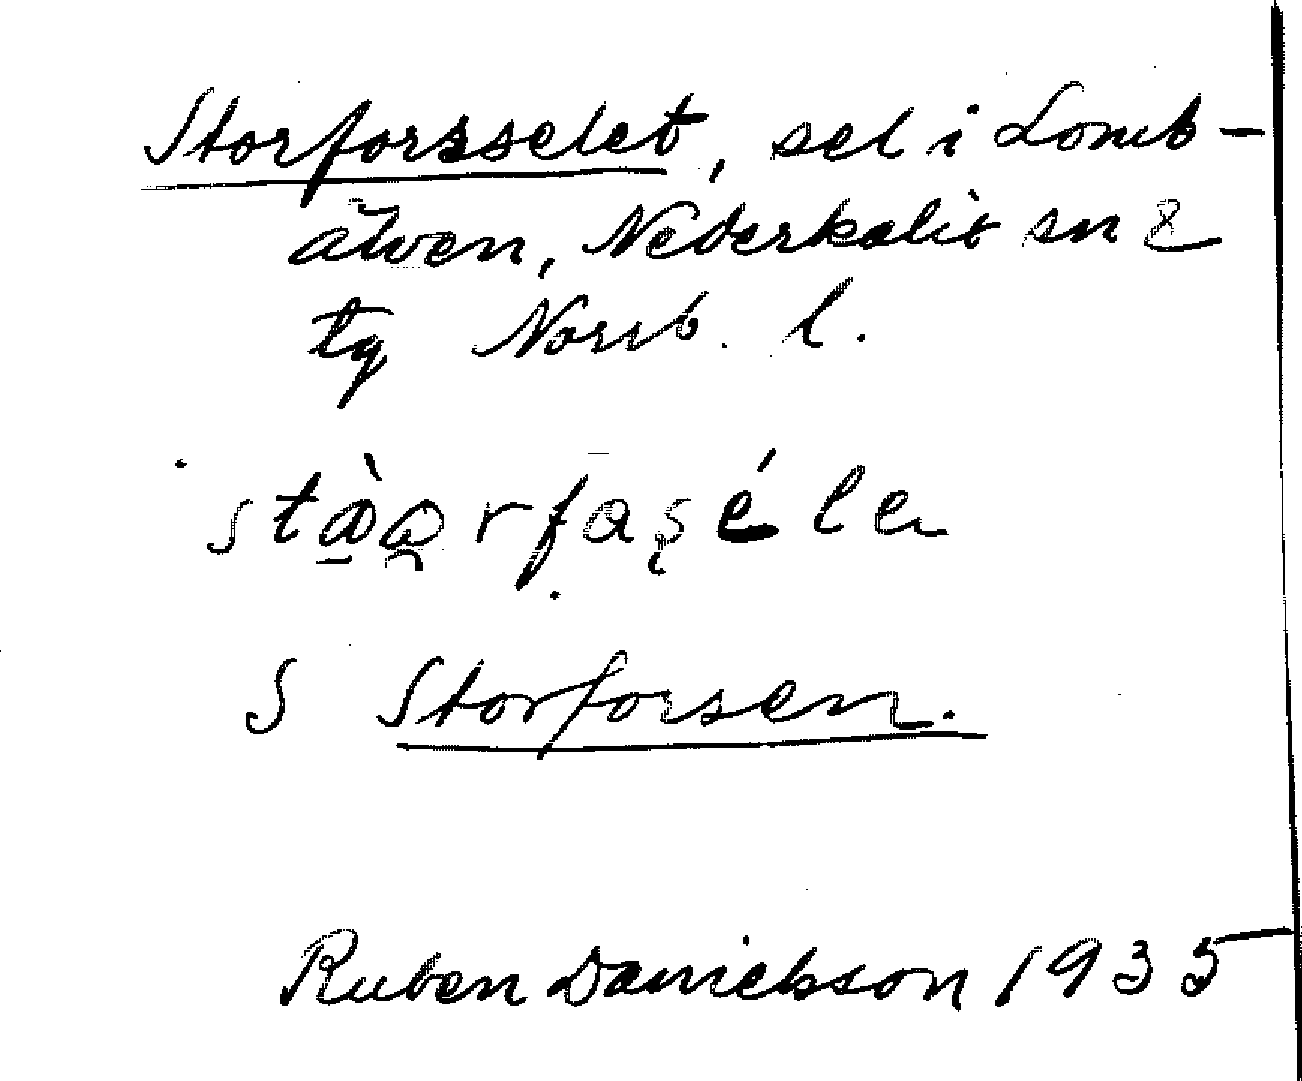 Storforsselet, sel i Lomb-
älven, Nederkalix sn &
tg Norrb. l.
stɑ̀ɑrfaṣéle
S Storforsen.
Ruben Danielsson 1935